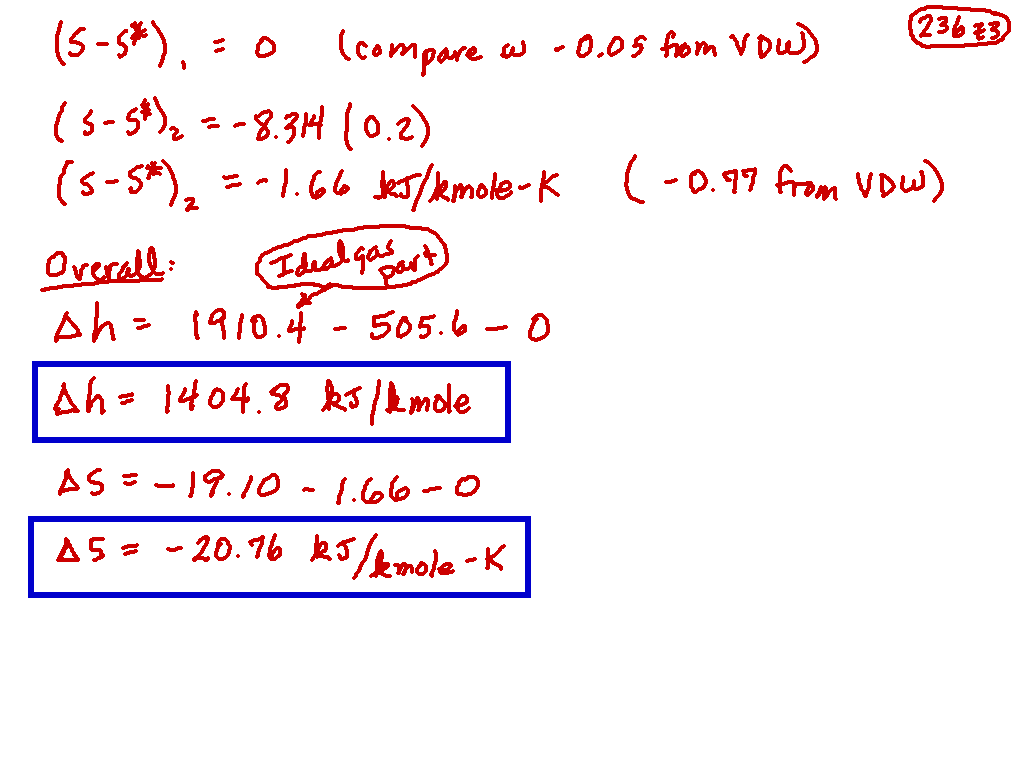 236 z3
(s-s*)₁ = 0 (compare w -0.05 from VDW)
(s-s*)₂ = -8.314 (0.2)
(s-s*)₂ = -1.66 kJ/kmole-K (-0.77 from VDW)
Overall:
Ideal gas
part
Δh = 1910.4 - 505.6 - 0
Δh = 1404.8 kJ/kmole
Δs = -19.10 - 1.66 - 0
Δs = -20.76 kJ/kmole-K